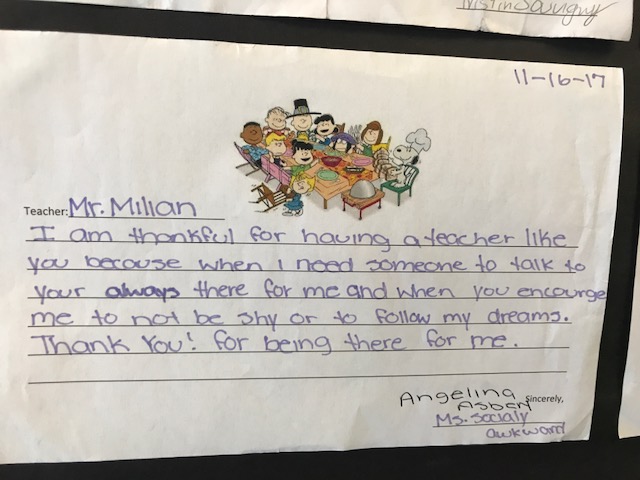 11-16-17
Teacher: Mr. Milian
I am thankful for having a teacher like
you because when I need someone to talk to
your always there for me and when you encourge
me to not be shy or to follow my dreams.
Thank You! for being there for me.
Angelina Sincerely,
Asbery
Ms. Socialy
awkword